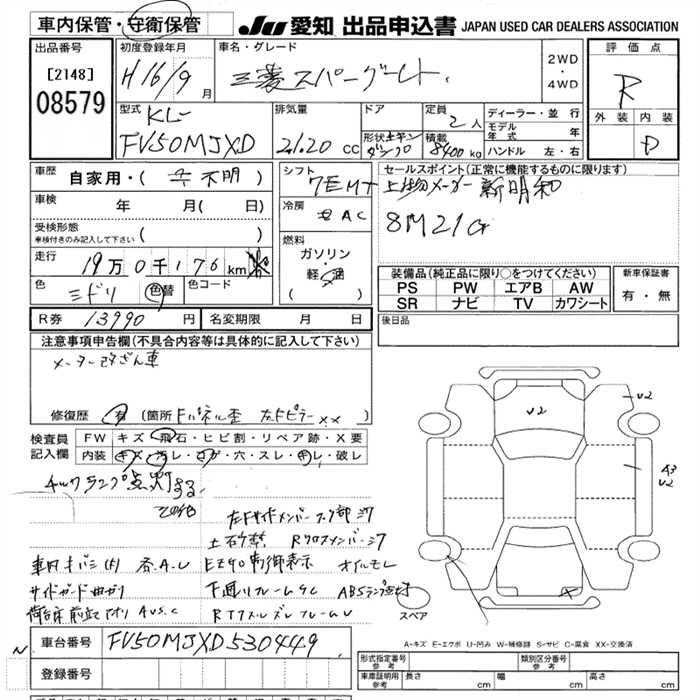 車内保管・守衛保管
JU 愛知 出品申込書 JAPAN USED CAR DEALERS ASSOCIATION
出品番号
[2148]
08579
初度登録年月
H16/9月
車名・グレード
三菱スパーグレート
2WD
・
4WD
評価点
R
外装 内装
D
型式
KL-
FV50MJXD
排気量
21.20 cc
ドア
形状
定員
2人
積載
8400kg
ディーラー・並行
モデル年式 年
ハンドル 左・右
車歴
自家用・( 不明
車検
年 月( 日)
受検形態
車検付きのみ記入して下さい ( )
走行
19万0千176km
色
ミドリ
色替
色コード
R券 13990円
名変期限 月 日
シフト
7EMT
冷房
AC
燃料
ガソリン
・
軽油
( )
セールスポイント(正常に機能するものに限ります)
上物メーカー新明和
8M21
装備品(純正品に限り○をつけてください)
PS PW エアB AW
SR ナビ TV カワシート
新車保証書
有・無
後日品
注意事項申告欄(不具合内容等は具体的に記入して下さい)
メーター改ざん車
修復歴 有 (箇所 Fパネル歪 左Fピラーxx)
検査員
記入欄
FW キズ・飛石・ヒビ割・リペア跡・X要
内装 キズ・汚レ・コゲ・穴・スレ・キレ・破レ
チェックランプ点灯
土砂禁 Rクロスメンバー
オイルモレ
サイドガード曲がり
ABSランプ点灯
U2
U2
A3
U2
X
スペア
A-キズ E-エクボ U-凹み W-補修跡 S-サビ C-腐食 XX-交換済
車台番号 FV50MJXD530449
登録番号
形式指定番号
参考
類別区分番号
参考
車庫証明用
参考
長さ cm
幅 cm
高さ cm